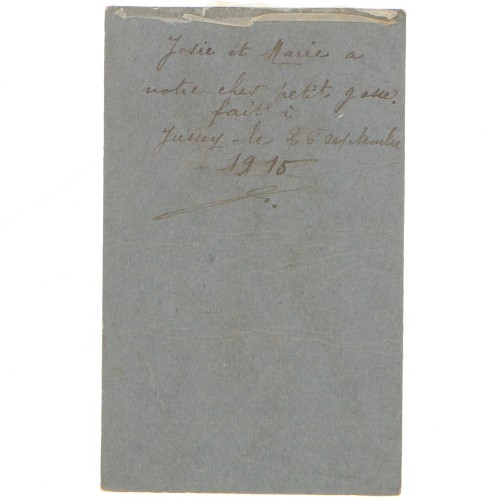 Josie et Marie a
notre cher petit gosse.
fait à
Jussey - le 26 septembre
1915